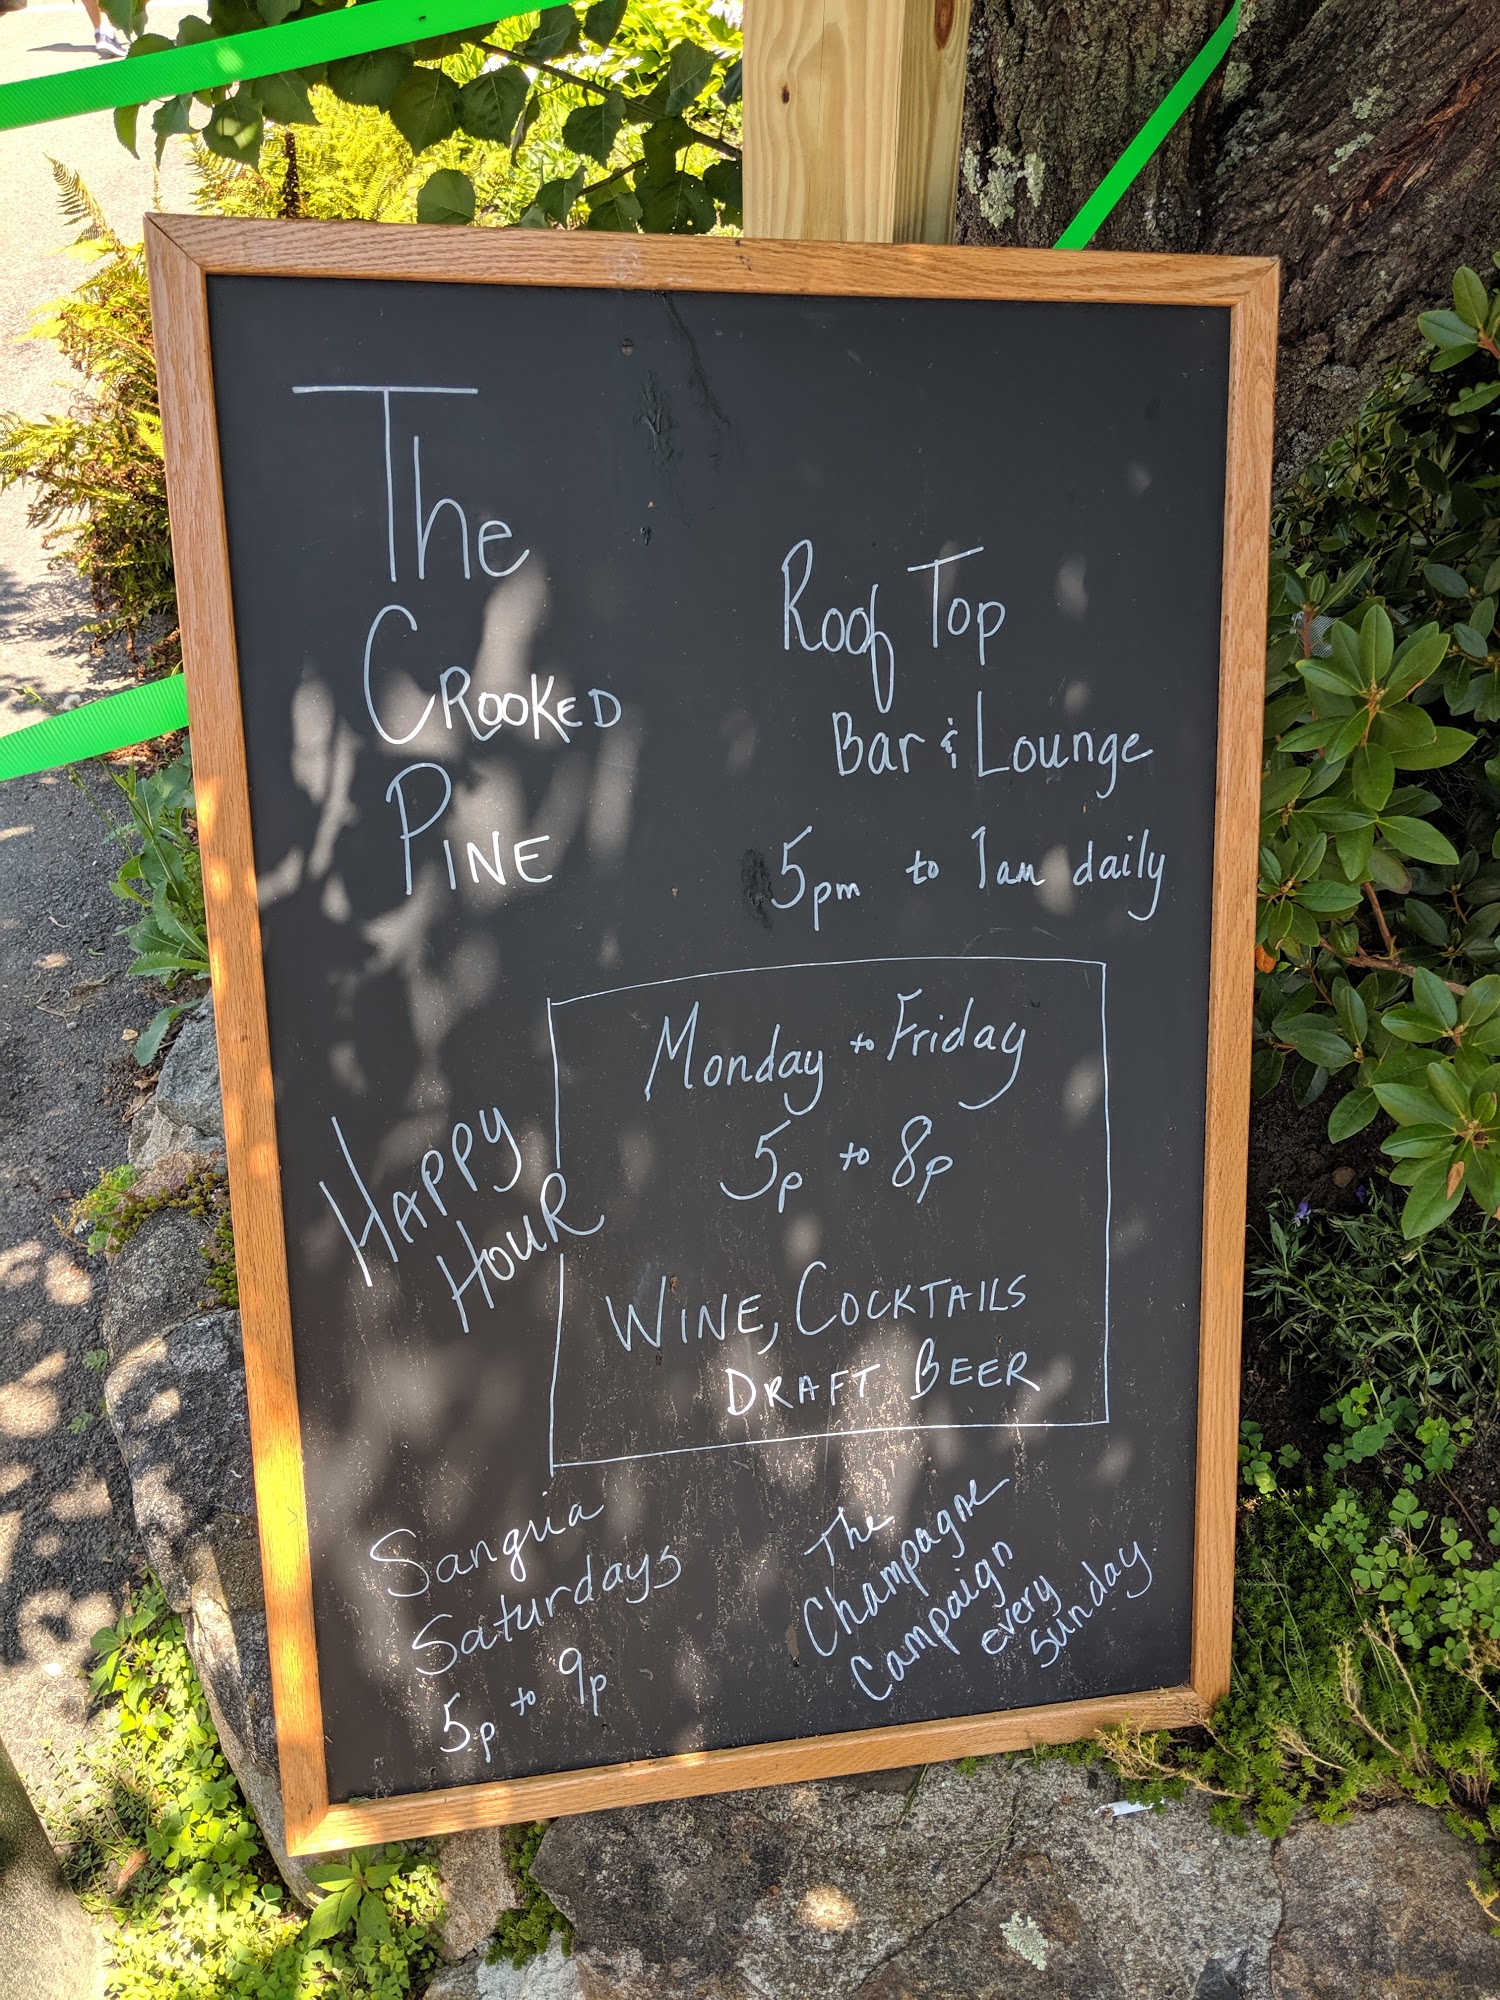 The
Crooked
Pine
Roof Top
Bar & Lounge
5pm to 1am daily
Happy
Hour
Monday to Friday
5p to 8p
Wine, Cocktails
Draft Beer
Sangria
Saturdays
5p to 9p
The
Champagne
Campaign
every
Sunday